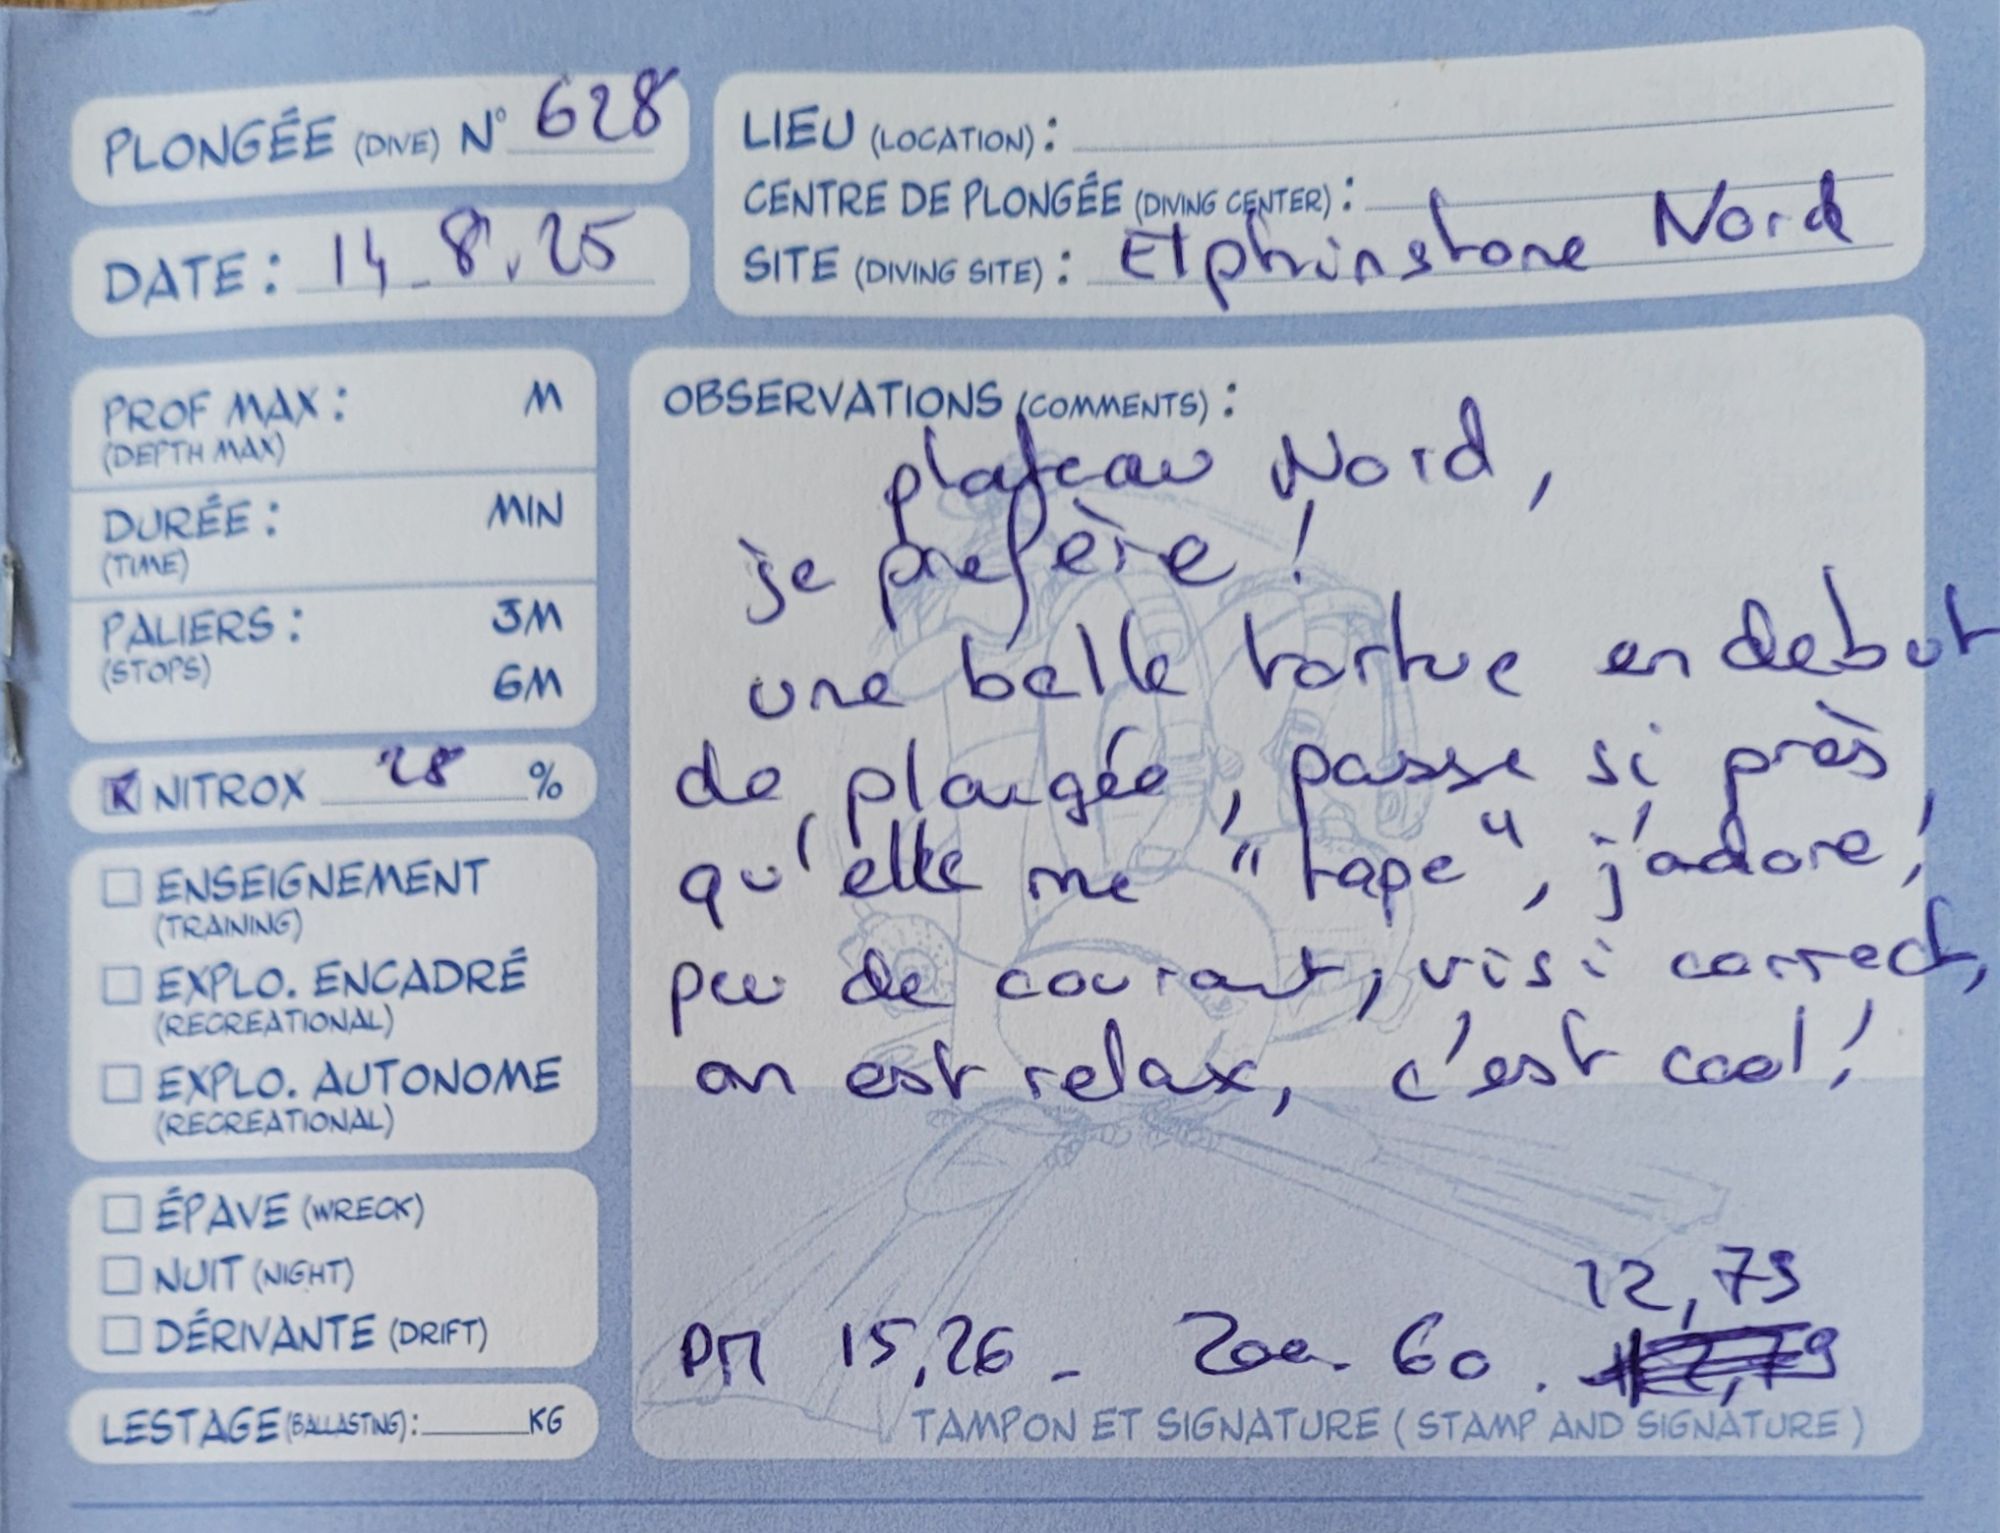 PLONGÉE (DIVE) N° 628
DATE : 14_8.25
LIEU (LOCATION) :
CENTRE DE PLONGÉE (DIVING CENTER) :
SITE (DIVING SITE) : Elphinstone Nord
PROF MAX : M
(DEPTH MAX)
DURÉE : MIN
(TIME)
PALIERS : 3M
(STOPS)
6M
NITROX 28 %
ENSEIGNEMENT
(TRAINING)
EXPLO. ENCADRÉ
(RECREATIONAL)
EXPLO. AUTONOME
(RECREATIONAL)
ÉPAVE (WRECK)
NUIT (NIGHT)
DÉRIVANTE (DRIFT)
LESTAGE (BALLASTING) : KG
OBSERVATIONS (COMMENTS) :
plateau Nord,
je prefère !
une belle tortue en debut
de plongée, passe si près
qu'elle me "tape", j'adore !
peu de courant, visi correct,
on est relax, c'est cool !
12,79
PM 15,26 - 200 - 60 .
TAMPON ET SIGNATURE (STAMP AND SIGNATURE)